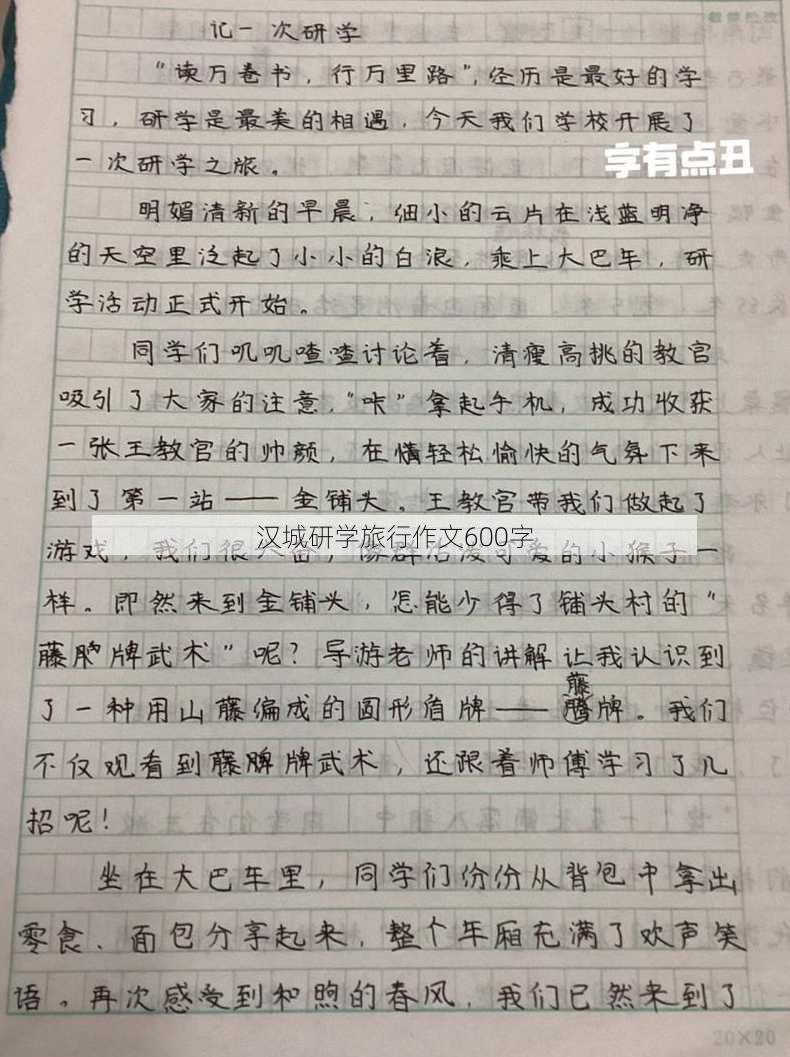 记一次研学
“读万卷书，行万里路”，经历是最好的学
习，研学是最美的相遇．今天我们学校开展了
字有点丑
一次研学之旅。
明媚清新的早晨，细小的云片在浅蓝明净
的天空里泛起了小小的白浪，乘上大巴车，研
学活动正式开始。
同学们叽叽喳喳讨论着，清瘦高挑的教官
吸引了大家的注意，“咔”拿起手机，成功收获
一张王教官的帅颜，在情轻松愉快的气氛下来
到了第一站——金铺头。王教官带我们做起了
汉城研学旅行作文600字
游戏，我们很兴奋，像群活泼可爱的小猴子一
样。即然来到金铺头，怎能少得了铺头村的“
藤牌武术”呢？导游老师的讲解让我认识到
了一种用山藤编成的圆形盾牌——藤牌。我们
不仅观看到藤牌武术，还跟着师傅学习了几
招呢！
坐在大巴车里，同学们份份从背包中拿出
零食、面包分享起来，整个车厢充满了欢声笑
语。再次感受到和煦的春风，我们已然来到了
20×20